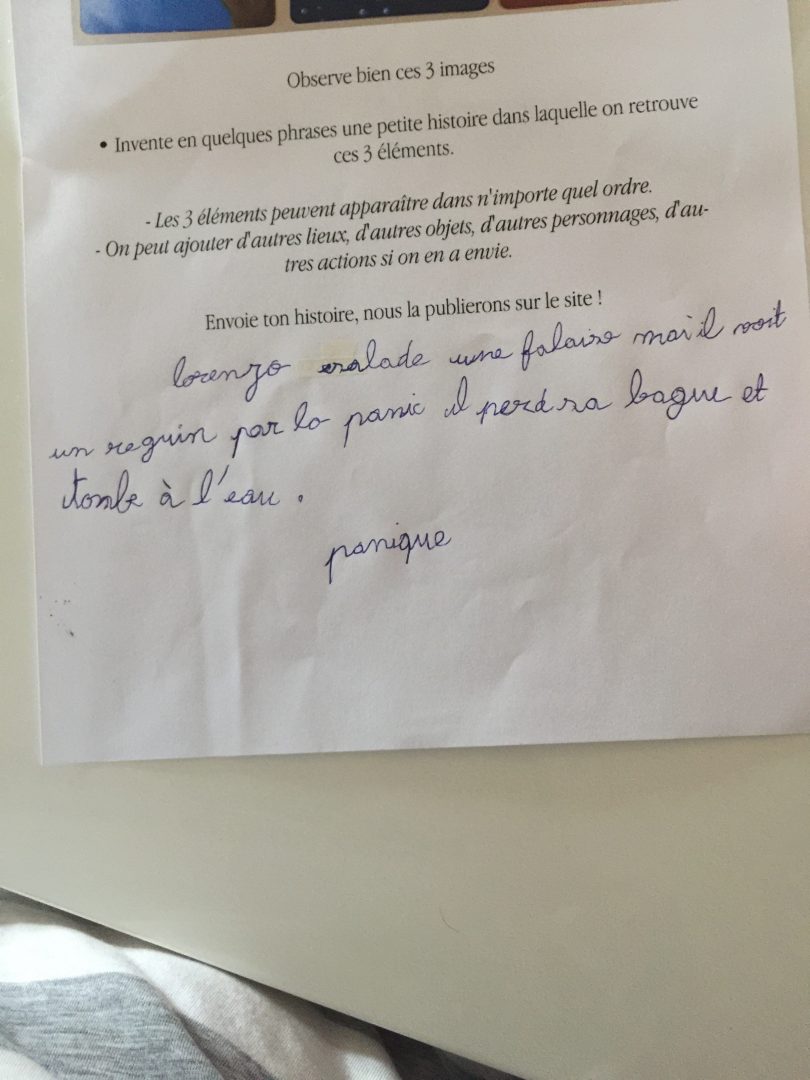 Observe bien ces 3 images
• Invente en quelques phrases une petite histoire dans laquelle on retrouve
ces 3 éléments.
- Les 3 éléments peuvent apparaître dans n'importe quel ordre.
- On peut ajouter d'autres lieux, d'autres objets, d'autres personnages, d'au-
tres actions si on en a envie.
Envoie ton histoire, nous la publierons sur le site !
lorenzo une falaise mai il voit
un requin par la panic il perd sa bague et
tombe à l'eau .
panique